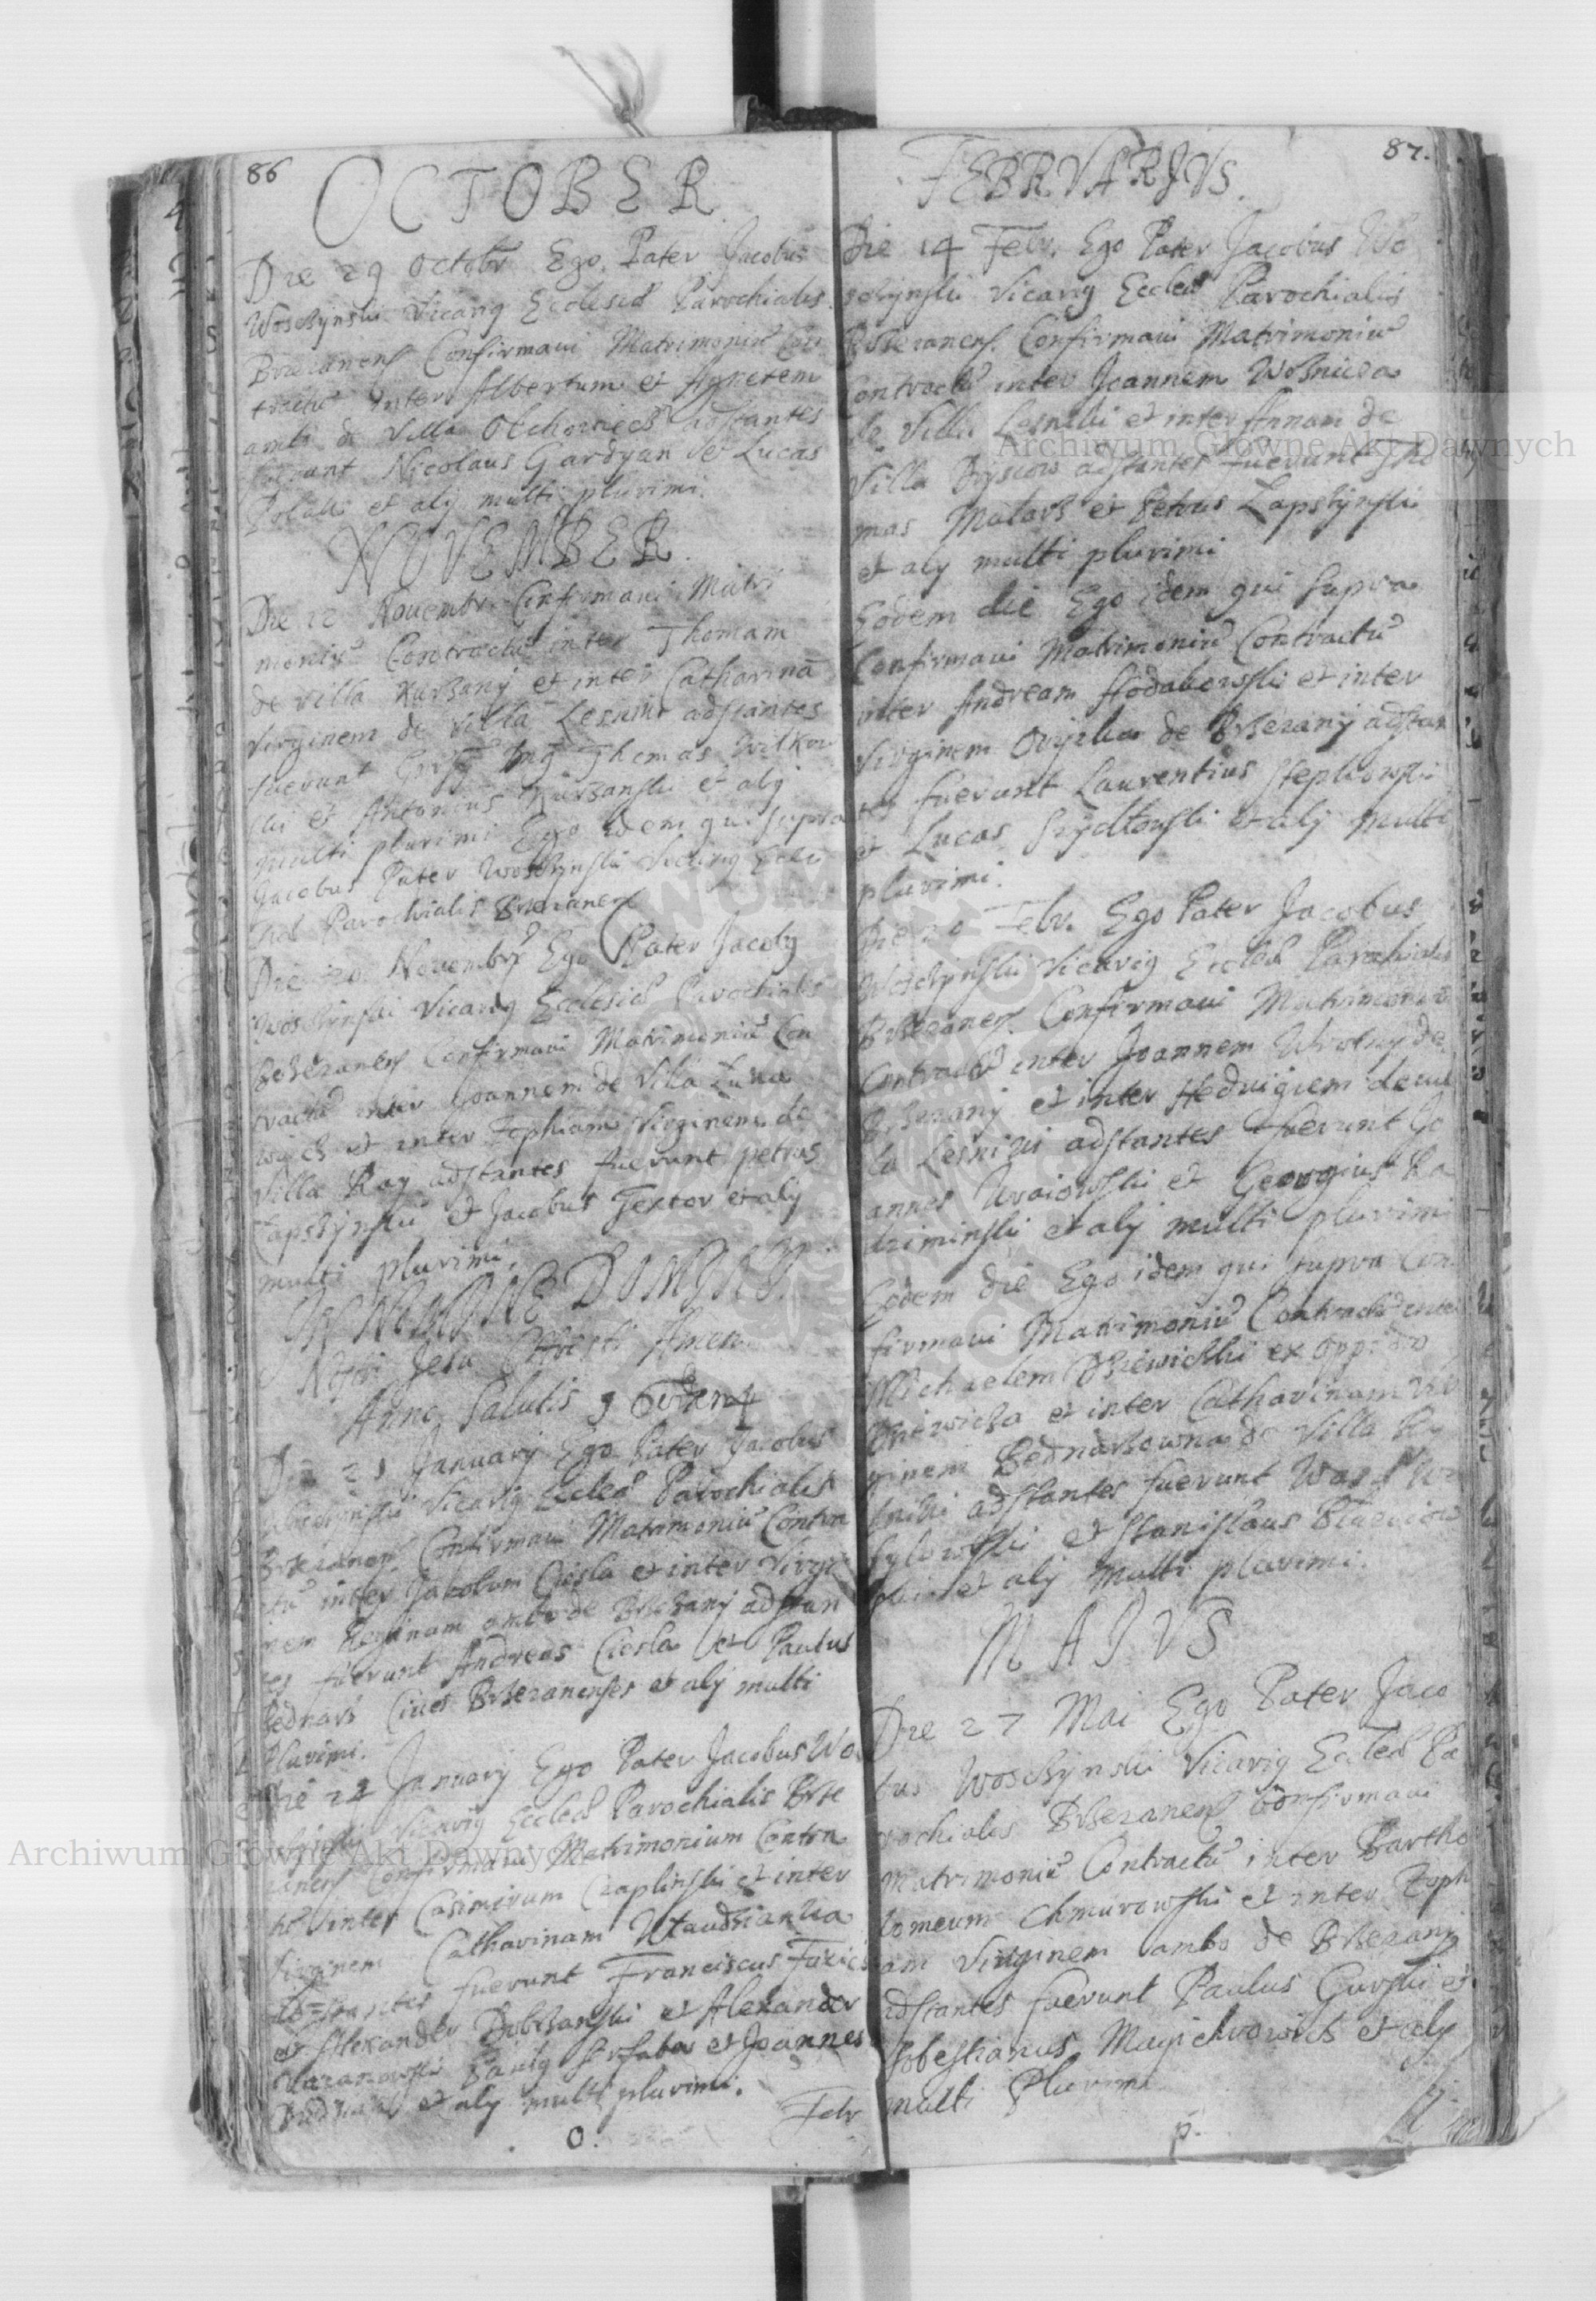 86
OCTOBER
Die 29 Octobr Ego Pater Jacobus
Woschynski Vicarig Ecclesiæ Parochialis
Brzezanens Confirmavi Matrimoniu Con
tractu inter Albertum et Agnetem
ambo de Villa Olchowiecz adstantes
fuerunt Nicolaus Gardyan et Lucas
et alij multi plurimi.
NOVEMBER
Die Novembr Confirmavi Matri
moniu Contractu inter Thomam
de Villa Kurzany et inter Catharina
Virginem de Villa Lesniki adstantes
fuerunt Thomas Wilkow
ski et Antonius Kurzanski et alij
multi plurimi Ego idem qui supra
Jacobus Pater Woschynski Vicarig Eccle
siæ Parochialis Brzezanens
Die Novembr Ego Pater Jacobg
Woschynski Vicarig Ecclesiæ Parochialis
Brzezanens Confirmavi Matrimoniu Con
tractu inter Joannem de Villa
et inter Zophiam Virginem de
Villa Ray adstantes fuerunt petrus
Lapshynski et Jacobus Textor et alij
multi plurimi.
IN NOMINE DOMINI
Nostri Jesu Christi Amen
Anno Salutis
Die 21 Januarij Ego Pater Jacobus
Woschynski Vicarig Eccleæ Parochialis
Brzezanens Confirmavi Matrimoniu Contra
ctu inter Jakobum Ciesla et inter Virgi
nem Reginam ambo de Brzezany adstan
tes fuerunt Andreas Ciesla et Paulus
Bednarz Cives Brzezanenses et alij multi
Plurimi.
Die 24 Januarij Ego Pater Jacobus Wo
schynski Vicarig Eccleæ Parochialis Brze
zanens Confirmavi Matrimonium Contra
ctu inter Casimirum Czaplinski et inter
Virginem Catharinam
adstantes fuerunt Franciscus
et Alexander Dobrzanski et Alexander
Paulg et Joannes
et alij multi plurimi.
Febr
O.
87.
FEBRVARJVS.
Die 14 Febr. Ego Pater Jacobus Wo
schynski Vicarig Eccleæ Parochialis
Brzezanens. Confirmavi Matrimoniu
Contractu inter Joannem Wosnicza
de Villa Lesniki et inter Annam de
Villa Byscow adstantes fuerunt Tho
mas Malarz et Petrus Lapshynski
et alij multi plurimi
Eodem die Ego idem qui supra
Confirmavi Matrimoniu Contractu
inter Andream et inter
Virginem de Brzezany adstan
tes fuerunt Laurentius Stepkowski
et Lucas Szydlowski et alij multi
plurimi.
Die 20 Febr. Ego Pater Jacobus
Woschynski Vicarig Eccleæ Parochialis
Brzezanens. Confirmavi Matrimoniu
Contractu inter Joannem de
Brzezany et inter Hedvigiem de vil
la Lesniki adstantes fuerunt Jo
annes et Georgius Ra
dziminski et alij multi plurimi
Eodem die Ego idem qui supra Con
firmavi Matrimoniu Contractu inter
Michaelem ex Oppido
et inter Catharinam Vir
ginem Bednarzowna de Villa
adstantes fuerunt
et Stanislaus
et alij multi plurimi.
MAJVS
Die 27 Mai Ego Pater Jaco
bus Woschynski Vicarig Eccleæ Pa
rochialis Brzezanens Confirmavi
Matrimoniu Contractu inter Bartho
lomeum Chmurowski et inter Zophi
am Virginem ambo de Brzezany
adstantes fuerunt Paulus Gurski et
Sobestianus et alij
multi Plurimi
p.
Archiwum Główne Akt Dawnych
Archiwum Główne Akt Dawnych